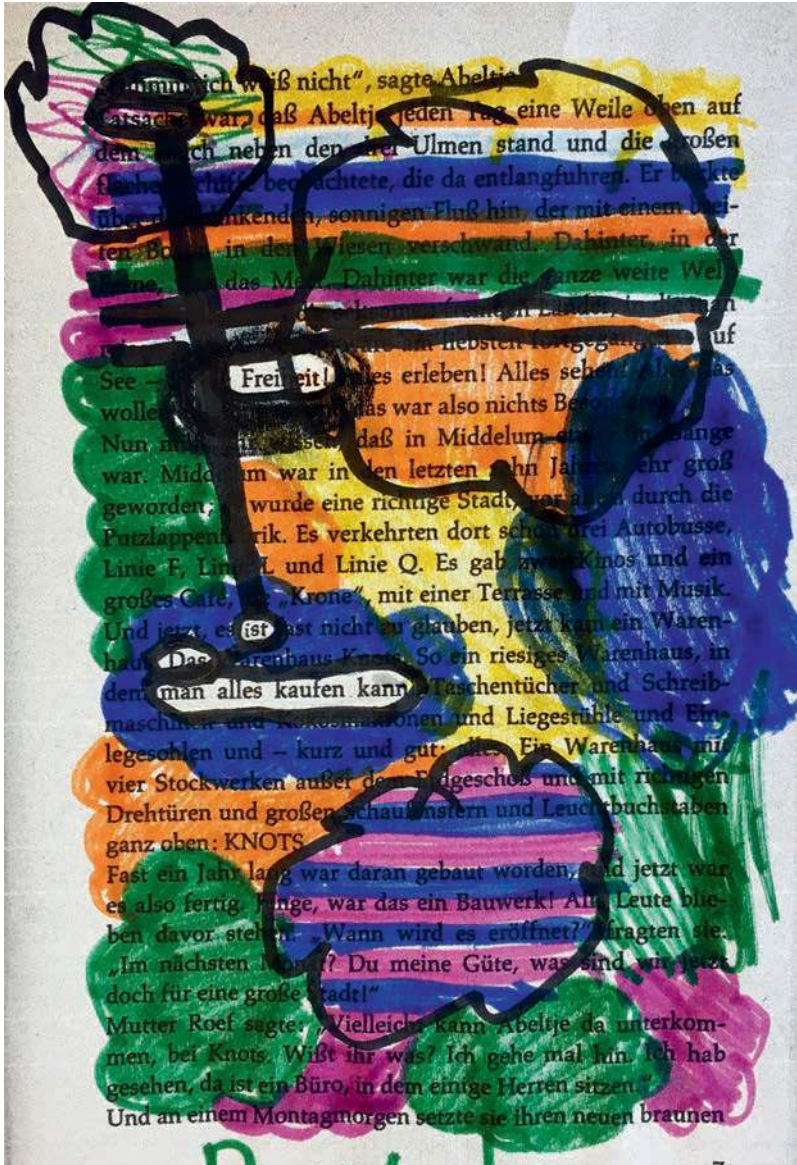 ich weiß nicht“, sagte Abeltje
war, daß Abeltje jeden Tag eine Weile oben auf
dem neben den drei Ulmen stand und die großen
beobachtete, die da entlangfuhren. Er blickte
über den blinkenden, sonnigen Fluß hin, der mit einem brei-
ten Bogen in den Wiesen verschwand. Dahinter, in der
Ferne, das Meer. Dahinter war die ganze weite Welt
am liebsten fortgegangen. Auf
See – Freiheit! Alles erleben! Alles sehen! Aber das
wollen das war also nichts
Nun daß in Middelum
war. Middelum war in den letzten zehn Jahren sehr groß
geworden; wurde eine richtige Stadt, vor allem durch die
Putzlappenfabrik. Es verkehrten dort schon drei Autobusse,
Linie F, Linie L und Linie Q. Es gab zwei Kinos und ein
großes Café, die „Krone“, mit einer Terrasse und mit Musik.
Und jetzt, es ist fast nicht zu glauben, jetzt kam ein Waren-
haus. Das Warenhaus Knots. So ein riesiges Warenhaus, in
dem man alles kaufen kann. Taschentücher und Schreib-
maschinen und Kokosmakronen und Liegestühle und Ein-
legesohlen und – kurz und gut: alles. Ein Warenhaus mit
vier Stockwerken außer dem Erdgeschoß und mit richtigen
Drehtüren und großen Schaufenstern und Leuchtbuchstaben
ganz oben: KNOTS
Fast ein Jahr lang war daran gebaut worden, und jetzt war
es also fertig. Junge, war das ein Bauwerk! Alle Leute blie-
ben davor stehen. „Wann wird es eröffnet?“ fragten sie.
„Im nächsten Monat? Du meine Güte, was sind wir jetzt
doch für eine große Stadt!“
Mutter Roef sagte: „Vielleicht kann Abeltje da unterkom-
men, bei Knots. Wißt ihr was? Ich gehe mal hin. Ich hab
gesehen, da ist ein Büro, in dem einige Herren sitzen.“
Und an einem Montagmorgen setzte sie ihren neuen braunen